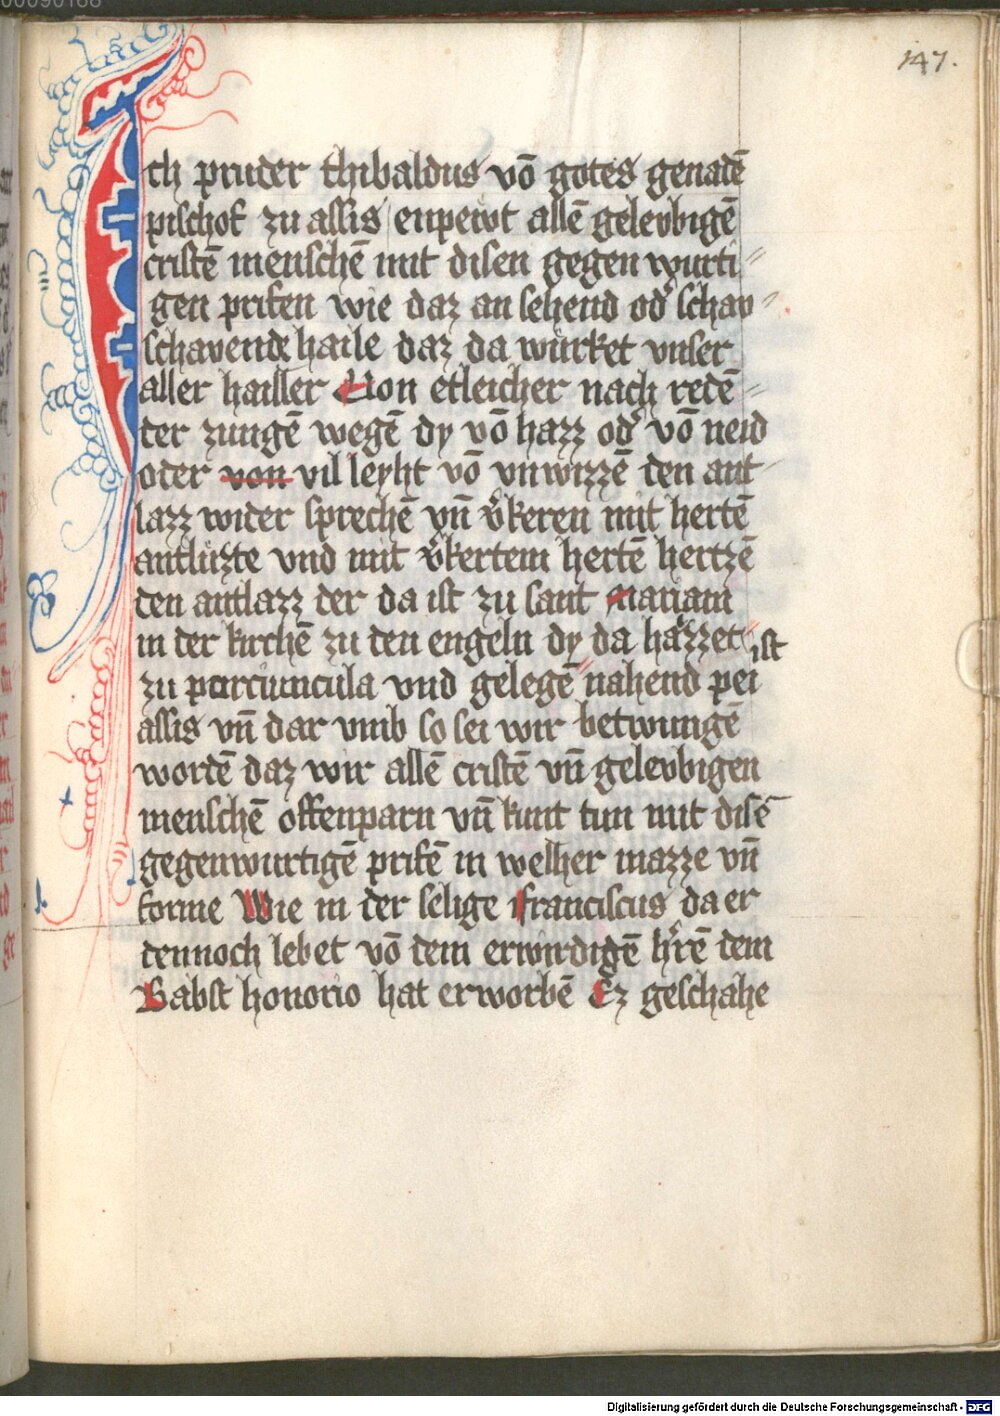 00090168
147.
Ich pruder thibaldus võ gotes genadẽ
pischof zu assis enpewt allẽ gelevbigẽ
cristẽ menschẽ mit disen gegen wurti⸗
gen prifen wie daz an sehend od͛ schav⸗
schavende haile daz da würket vnser
aller hailler Von etleicher nach redẽ⸗
der zungẽ wegẽ dy võ hazz od͛ võ neid
oder von vil leyht võ vnwizzẽ den ant⸗
lazz wider sprechẽ vñ v͛keren mit hertẽ
antlüzte vnd mit v͛kertem hertẽ hertzẽ
den antlazz der da ist zu sant Mariam
in der kirchẽ zu den engeln dy da hazzet ist
zu porciuncula vnd gelegẽ nahend pei
assis vñ dar vmb so sei wir betwungẽ
wordẽ daz wir allẽ cristẽ vñ gelevbigen
menschẽ offenparn vñ kunt tun mit disẽ
gegenwurtigẽ prifẽ in welher mazze vñ
forme Wie in der selige franciscus da er
dennoch lebet võ dem erwirdigẽ h͛rẽ dem
Babst honorio hat erworbẽ Ez geschahe
Digitalisierung gefördert durch die Deutsche Forschungsgemeinschaft - DFG